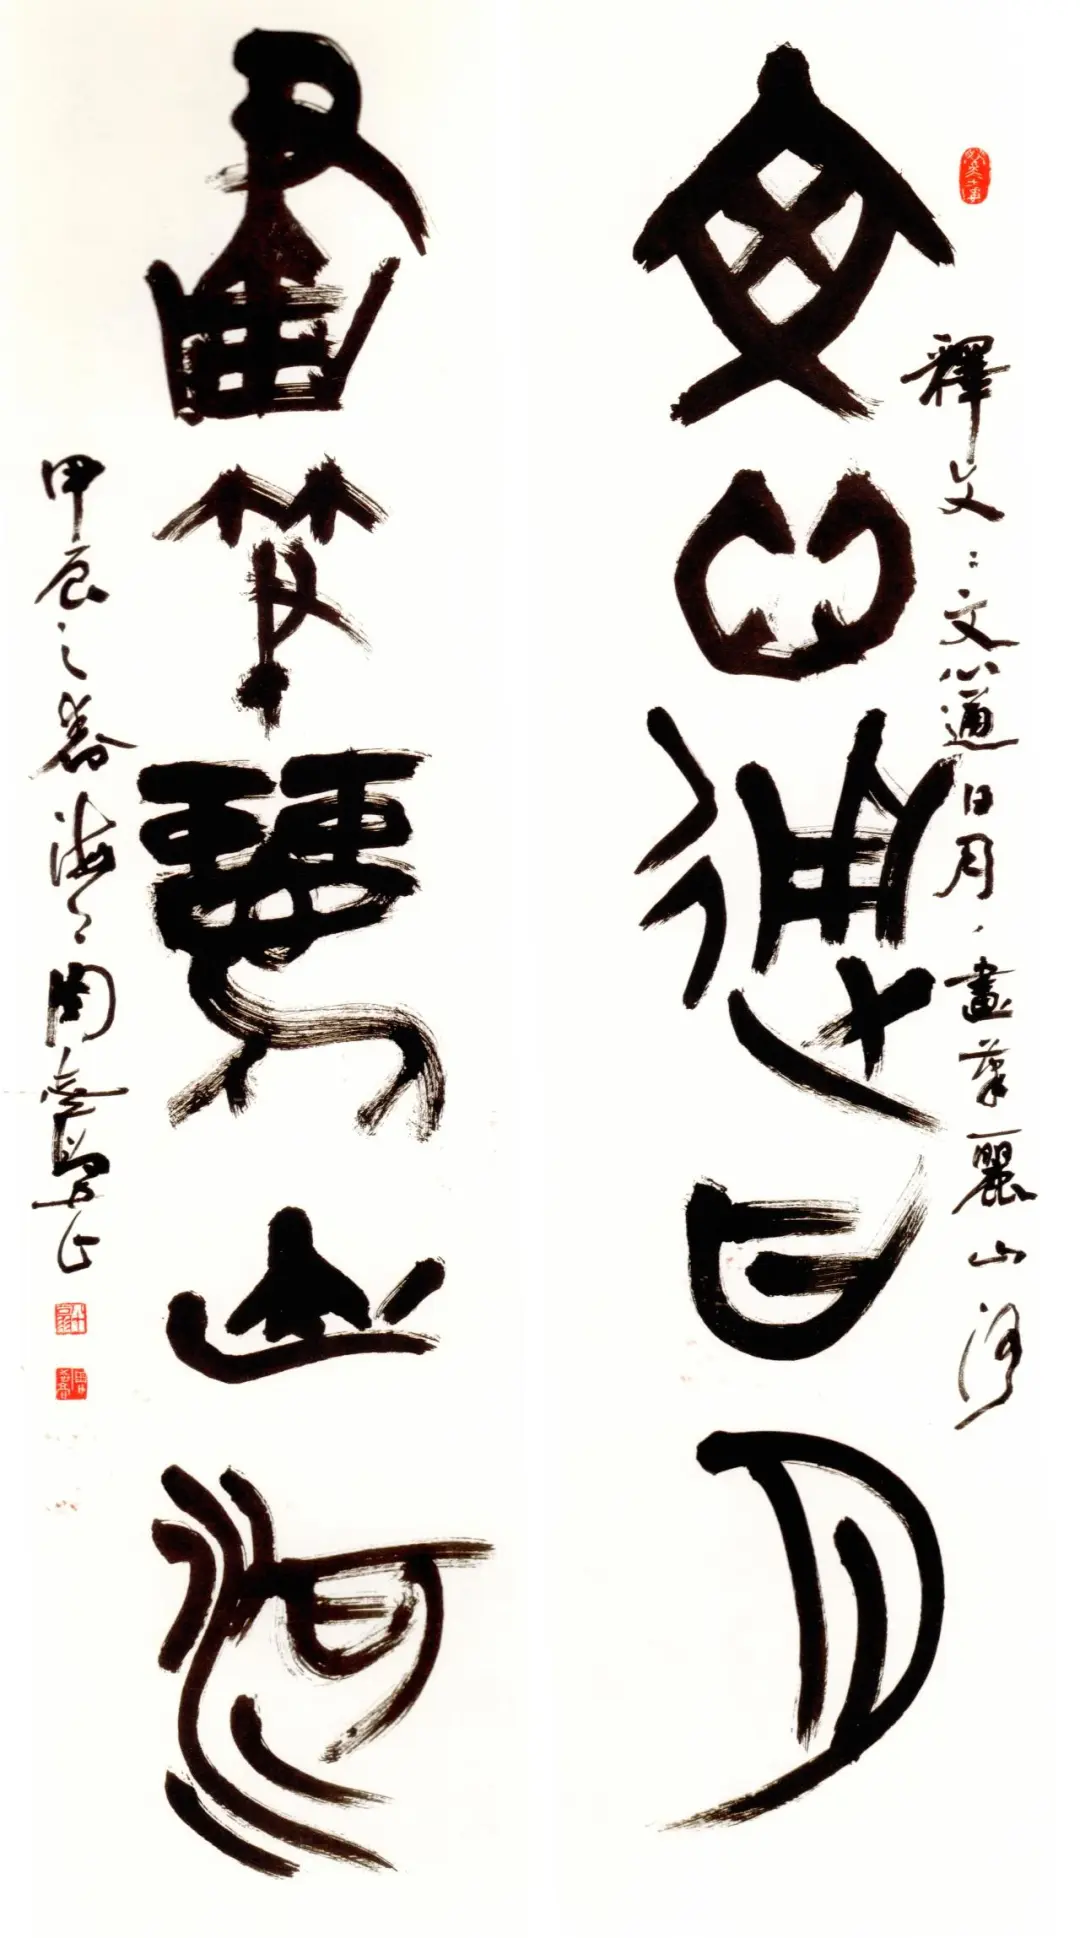 釋文：文心通日月，畫筆麗山河
文心通日月
畫筆麗山河
甲辰之春海上周